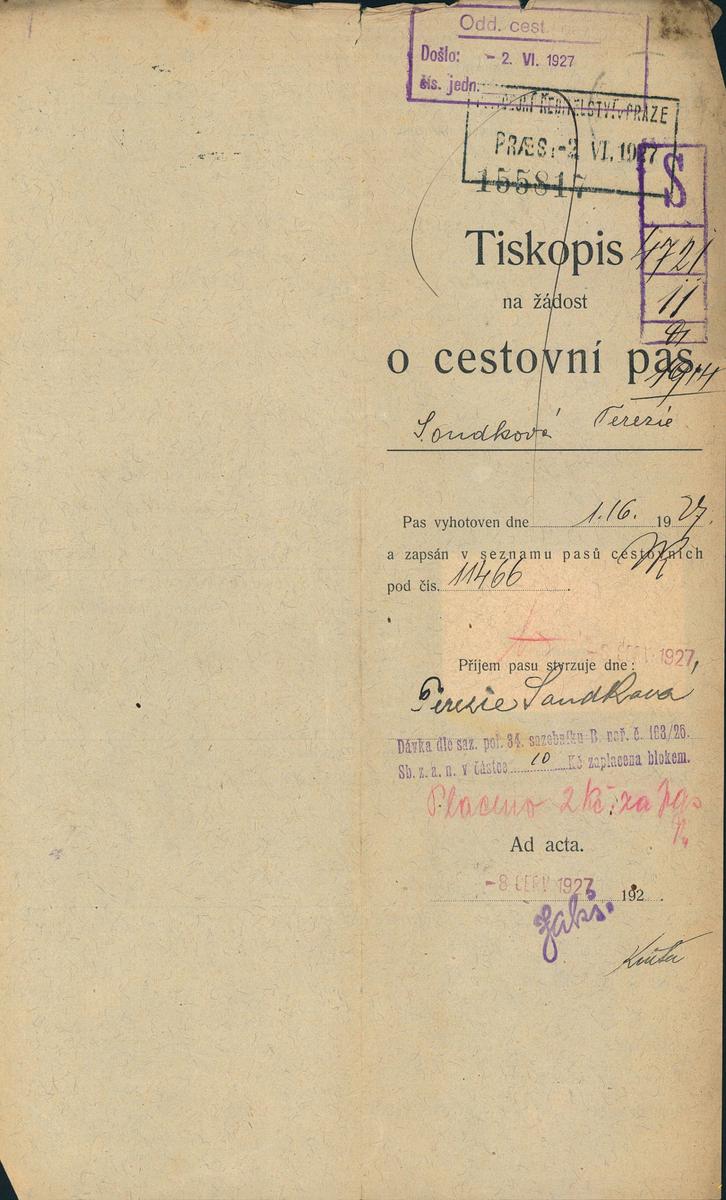 Odd. cest.
Došlo: - 2. VI. 1927
čís. jedn.
ŘEDITELSTVÍ V PRAZE
PRÆS: -2 VI. 1927
155817
S
4721
11
1914
Tiskopis
na žádost
o cestovní pas.
Sondková Terezie
Pas vyhotoven dne 1.16. 1927.
a zapsán v seznamu pasů cestovních
pod čís. 11466
1927
Příjem pasu stvrzuje dne:
Terezie Sandkova
Dávka dle saz. pol. 34. sazebníku B. nař. č. 163/26.
Sb. z. a. n. v částce 10 Kč zaplacena blokem.
Placeno 2 Kč za
Ad acta.
-8 ČERV 1927 192